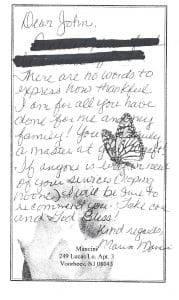 Dear John,
There are no words to
express how thankful
I am for all you have
done for me and my
family! You
a master at your craft!
If anyone is ever in need
of your services (hopefully
none) I will be sure to
recommend you. Take care
and God Bless!
Kind regards,
Maria Mancini
Mancini
249 Lucas Ln. Apt. 3
Voorhees, NJ 08043